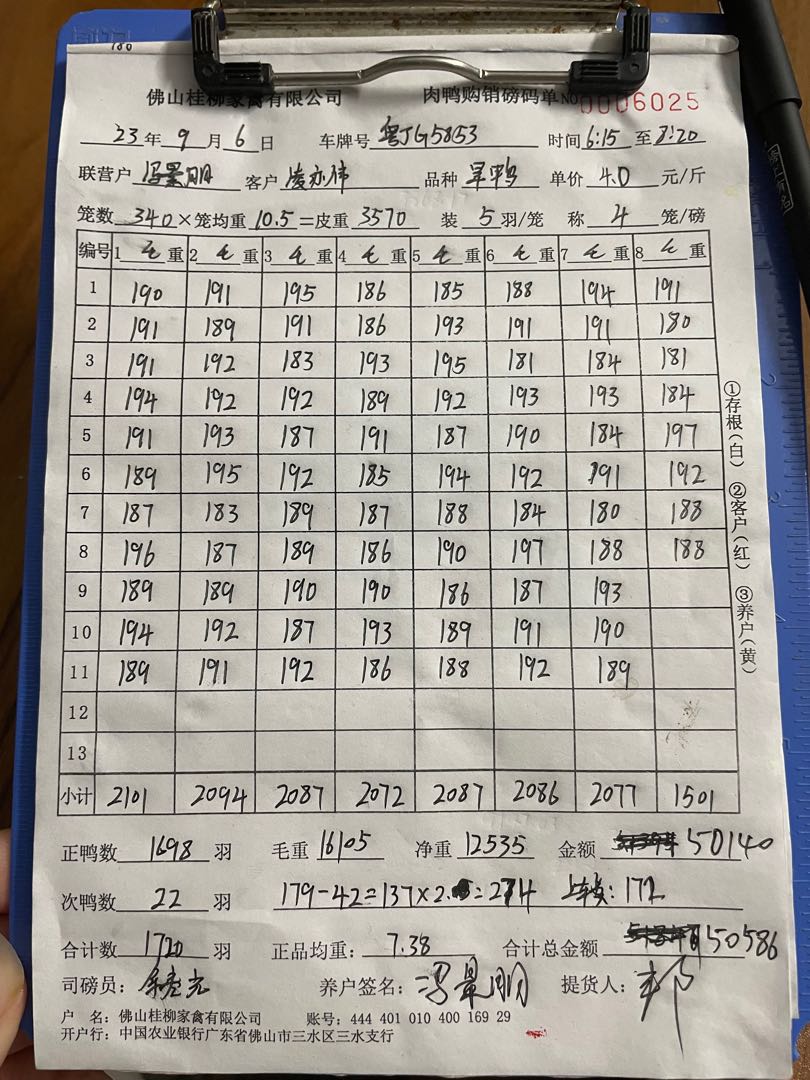 180
佛山桂柳家禽有限公司 肉鸭购销磅码单 NO 0006025
23年9月6日 车牌号 粤JG5853 时间6:15至8:20
联营户 冯景明 客户 凌亦伟 品种 旱鸭 单价 4.0 元/斤
笼数 340×笼均重 10.5=皮重 3570 装 5 羽/笼 称 4 笼/磅
编号 1 毛 重 2 毛 重 3 毛 重 4 毛 重 5 毛 重 6 毛 重 7 毛 重 8 毛 重
1 190 191 195 186 185 188 194 191
2 191 189 191 186 193 191 191 180
3 191 192 183 193 195 181 184 181
4 194 192 192 189 192 193 193 184
5 191 193 187 191 187 190 184 197
6 189 195 192 185 194 192 191 192
7 187 183 189 187 188 184 180 188
8 196 187 189 186 190 197 188 188
9 189 189 190 190 186 187 193
10 194 192 187 193 189 191 190
11 189 191 192 186 188 192 189
12
13
小计 2101 2094 2087 2072 2087 2086 2077 1501
①存根(白) ②客户(红) ③养户(黄)
正鸭数 1698 羽 毛重 16105 净重 12535 金额 50140
次鸭数 22 羽 179-42=137×2.=274 上车费:172
合计数 1720 羽 正品均重: 7.38 合计总金额 50586
司磅员: 养户签名: 冯景明 提货人: 邦
户 名: 佛山桂柳家禽有限公司 账号: 444 401 010 400 169 29
开户行: 中国农业银行广东省佛山市三水区三水支行